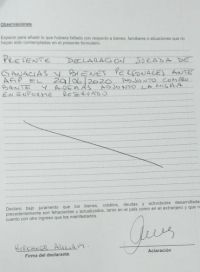 Observaciones:
Espacio para añadir lo que hubiera faltado con respecto a bienes, familiares o situaciones que no
hayan sido contempladas en el presente formulario.
PRESENTE DECLARACION JURADA DE
GANACIAS Y BIENES PERSONALES ANTE
AFIP EL 29/06/2020 ADJUNTO COMPRO
BANTE Y ADEMAS ADJUNTO LA MISMA
EN INFORME RESERVADO
Declaro bajo juramento que los bienes, créditos, deudas y actividades desarrolladas
precedentemente son fehacientes y actualizados, tanto en el país como en el extranjero y que no
cuento con otro ingreso que los manifestados.
Firma del declarante.
Aclaración